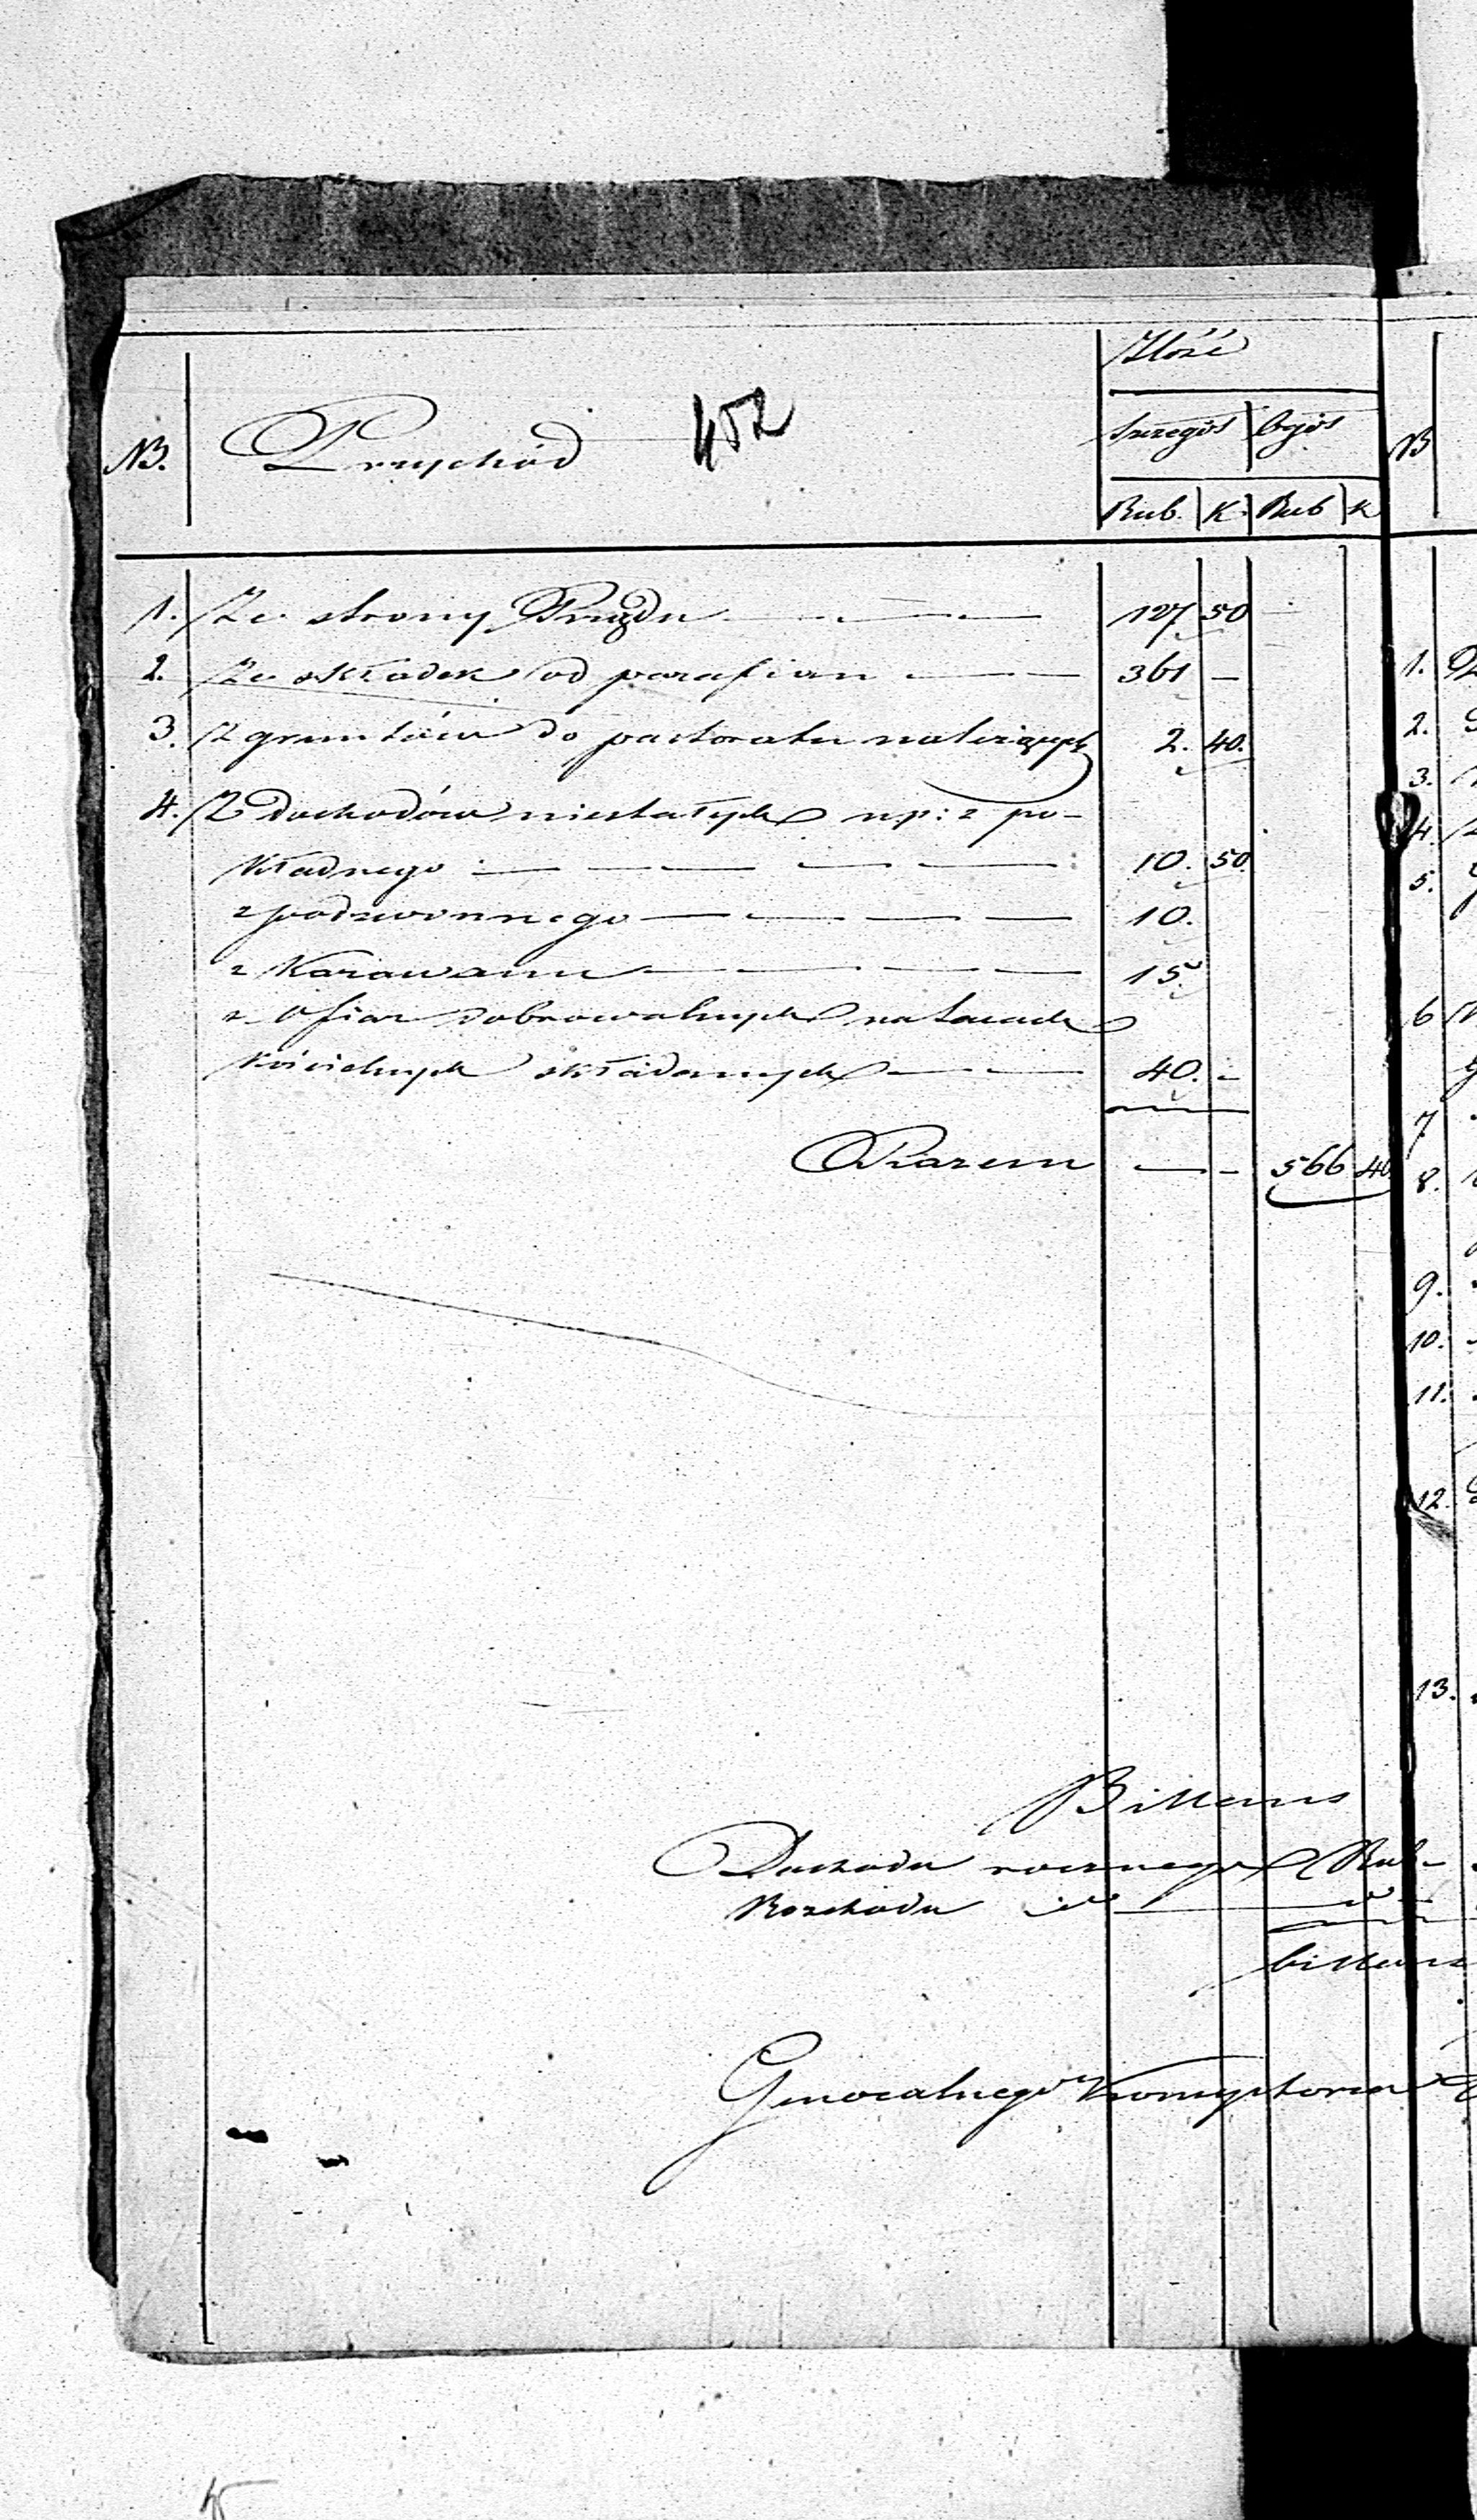 Ilość
NB. Przychód 452 szczegół ogół NB
Rub. K. Rub K
1. Ze strony Rządu 127 50
2. Ze składek od parafian 361 —
3. Z gruntów do pastoratu należących 2. 40.
4. Z dochodów niestałych np: z po-
kładnego 10. 50.
z podzwonnego 10.
z Karawanu 15.
z Ofiar dobrowolnych na tacach
kościelnych składanych 40. -
Razem — - 566 40
1.
2.
3.
4.
5.
6
7
8.
9.
10.
11.
12.
13.
Billans
Dochodu rocznego Rub.
Rozchodu
billans
Generalnego Konsystorza